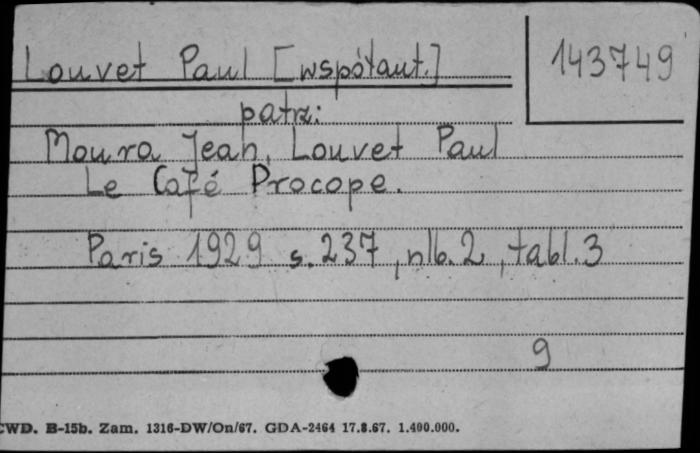 Louvet Paul [współaut.]
143749
patrz:
Moura Jean, Louvet Paul
Le Café Procope.
Paris 1929 s. 237, nlb. 2, tabl. 3
9
CWD. B-15b. Zam. 1316-DW/On/67. GDA-2464 17.8.67. 1.400.000.